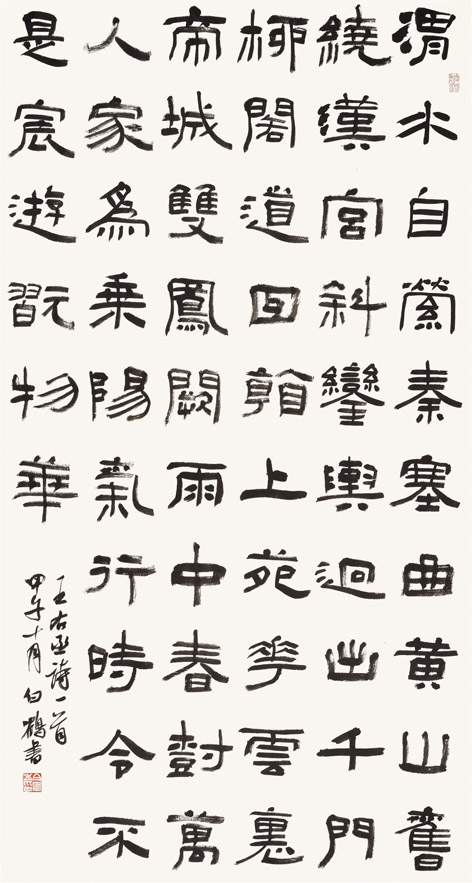 渭水自縈秦塞曲黃山舊
繞漢宮斜鑾輿迥出千門
柳閣道回看上苑花雲裏
帝城雙鳳闕雨中春樹萬
人家爲乘陽氣行時令不
是宸遊翫物華
王右丞詩一首
甲午十月白鶴書